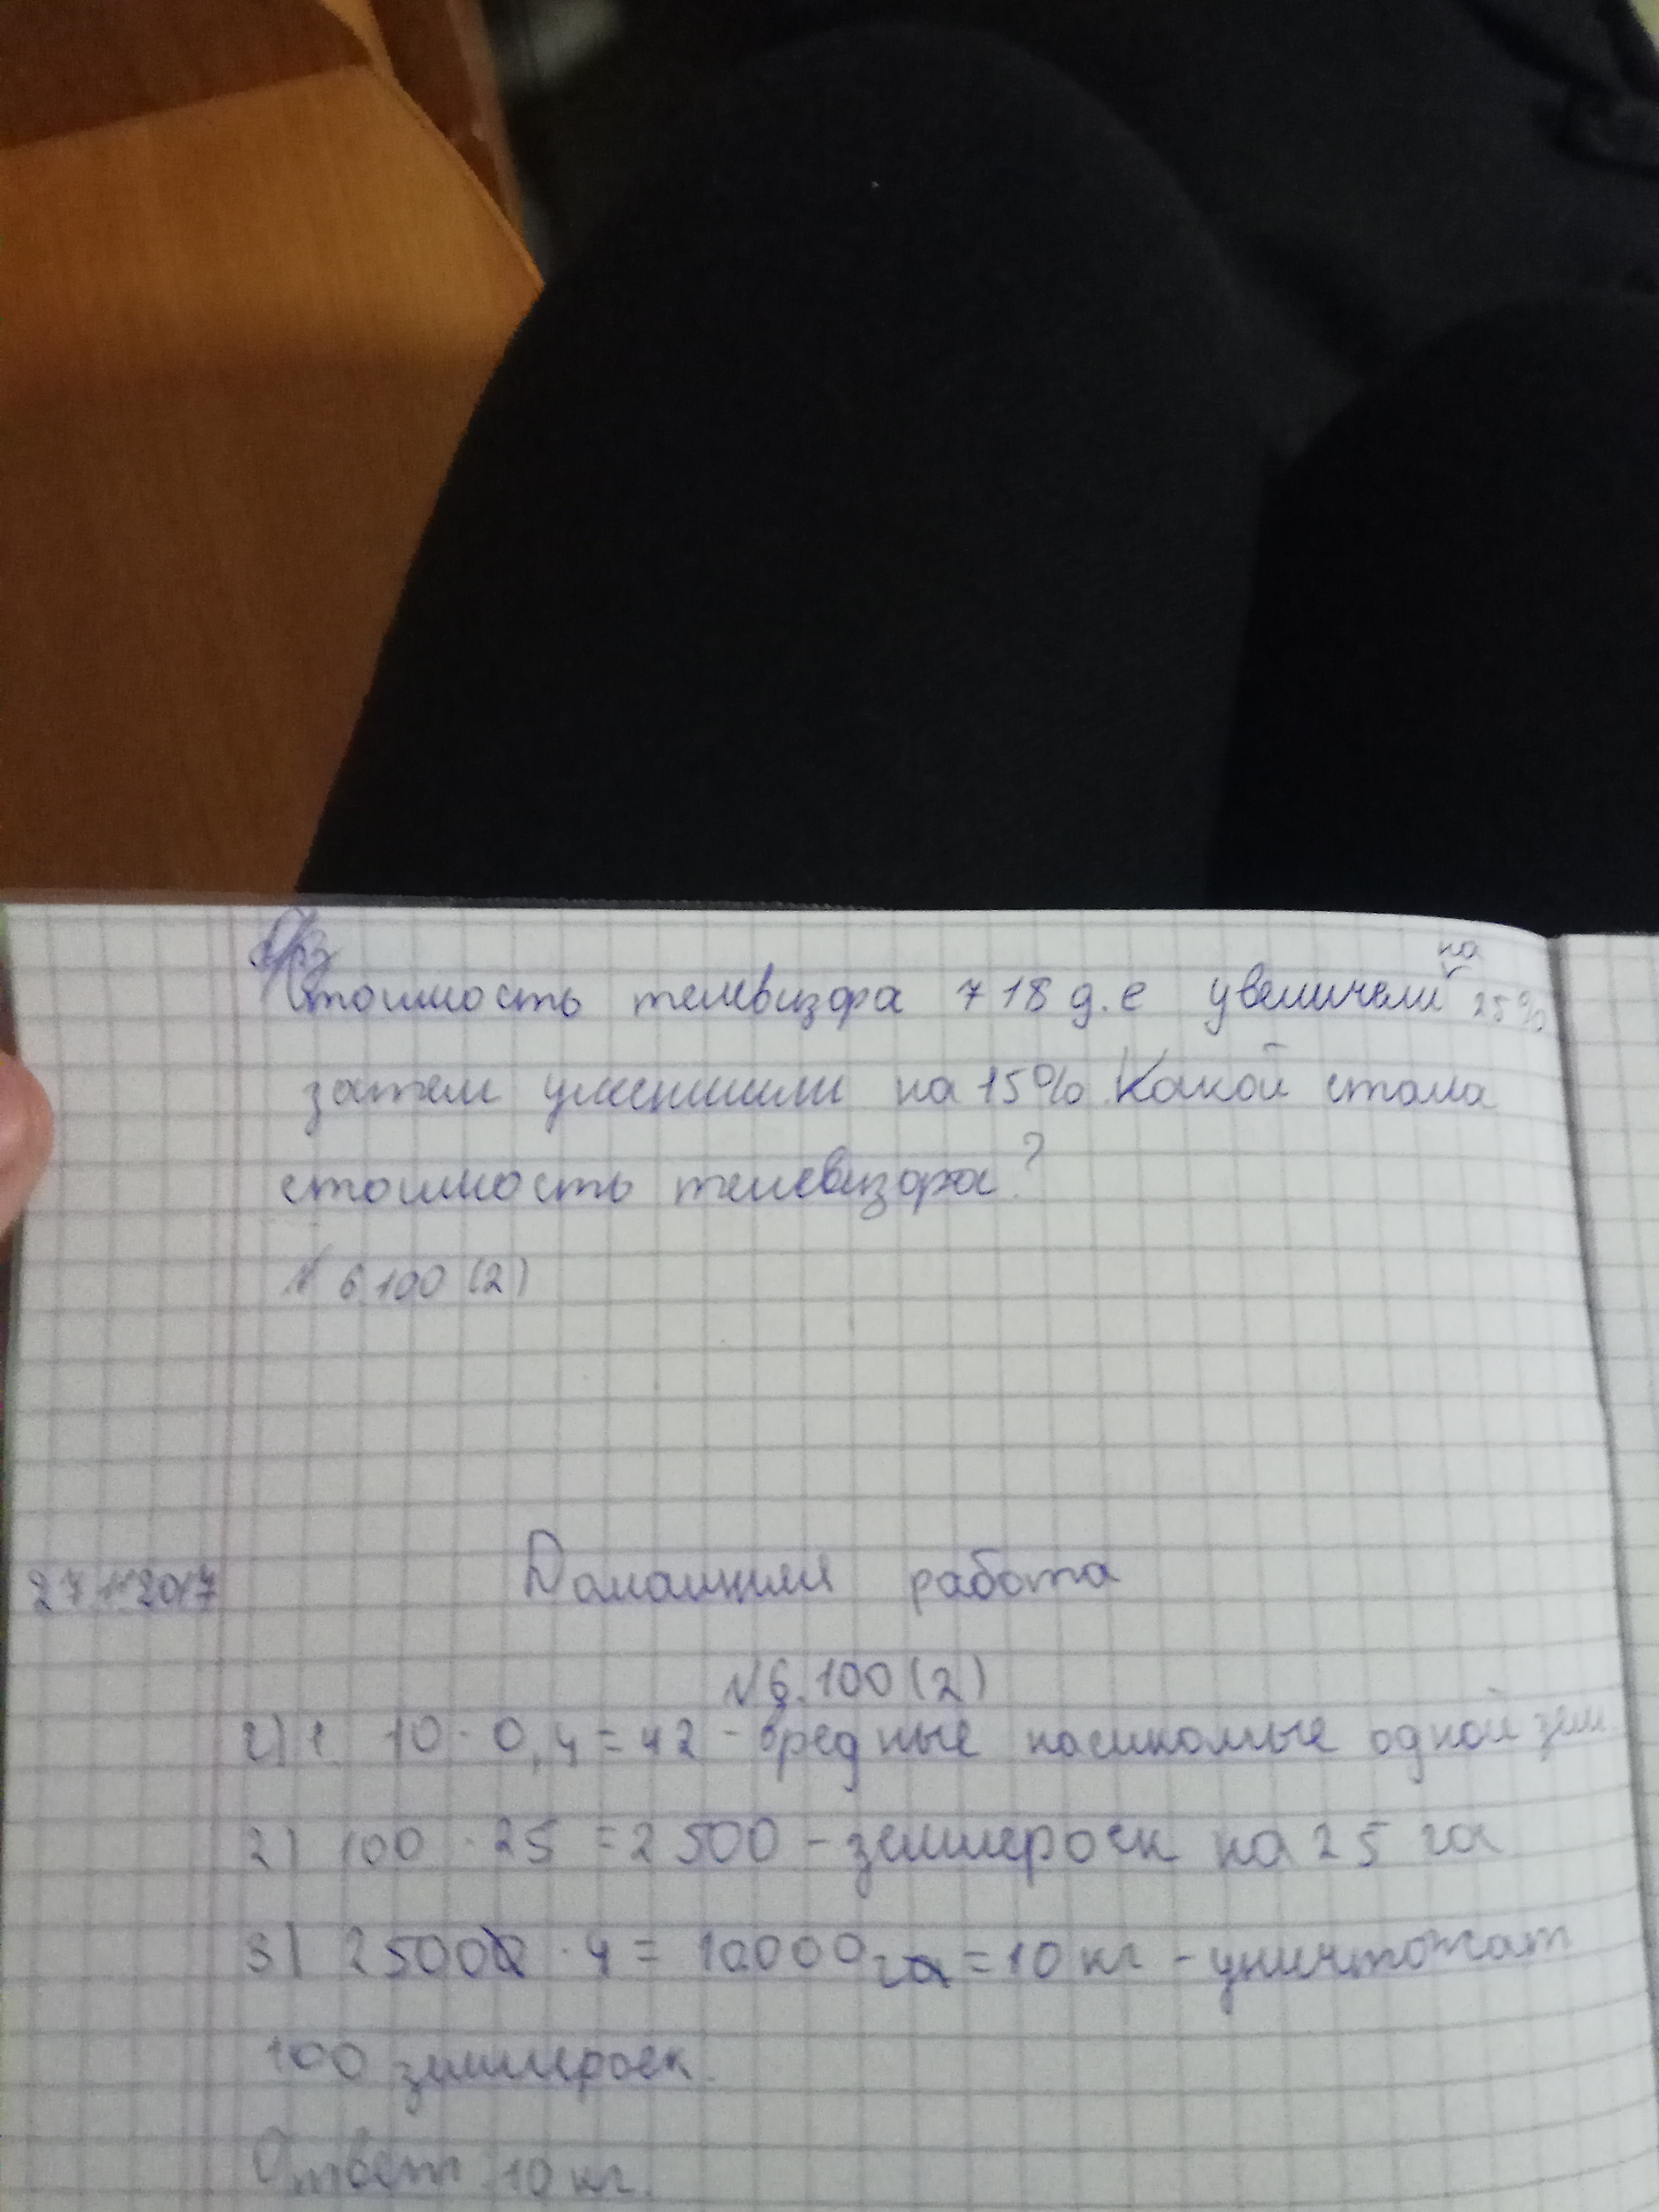 Стоимость телевизора 718 д.е увеличели на 25%
затем уменшили на 15%. Какой стала
стоимость телевизора?
№ 6.100 (2)
27.11.2017 Домашняя работа
№ 6.100 (2)
2) 1. 10 · 0,4 = 42 - вредные насикомые одной зем.
2) 100 · 25 = 2500 - землероек на 25 га
3) 2500 · 4 = 10000 га = 10 кг - уничтожат
100 землероек.
Ответ: 10 кг.